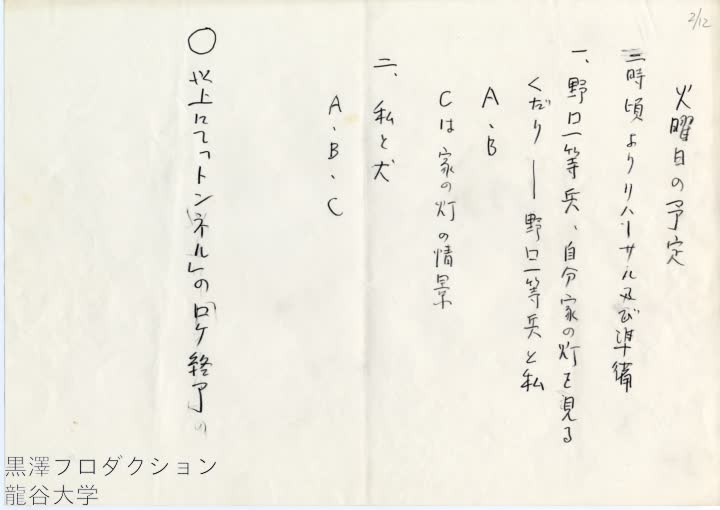 2/12
火曜日の予定
三時頃よりリハーサル及び準備
一、野口一等兵、自分家の灯を見る
くだり — 野口一等兵と私
A、B
Cは家の灯の情景
二、私と犬
A、B、C
○以上にて「トンネル」のロケ終了の
黒澤フロダクション
龍谷大学